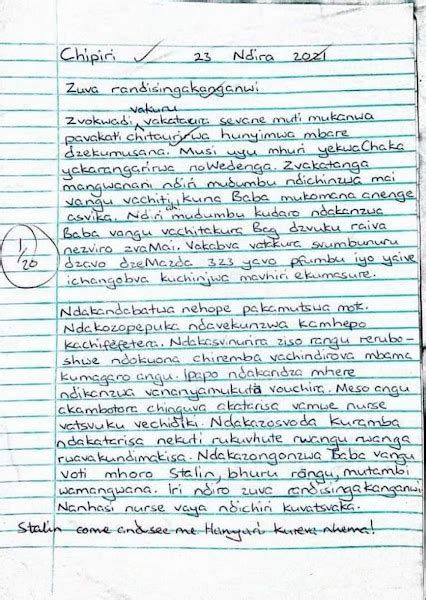 Chipiri ✓ 23 Ndira 2021
Zuva randisingakanganwi
vakuru
Zvokwadi, vakataura sevane muti mukanwa
pavakati chitaurirwa hunyimwa mbare
dzekumusana. Musi uyu mhuri yekwaChaka
yakarangarirwa noWedenga. Zvakatanga
mangwanani ndiri mudumbu ndichinzwa mai
vangu vachiti, kuna Baba mukomana anenge
asvika. Ndiri mudumbu kudaro ndakanzwa
Baba vangu vachitakura Bag dzvuku raiva
nezviro zvaMai. Vakabva vatkura svumbunuru
dzavo dzeMazda 323 yavo pfumbu iyo yaive
ichangobva kuchinjwa mavhiri ekumasure.
1/20
Ndakandabatwa nehope pakamutswa mot.
Ndakozopepuka ndavekunzwa kamhepo
kachifefetera. Ndakasvinurira ziso rangu rerubo-
shwe ndokuona chiremba vachindirova mbama
kumagaro angu. Ipapo ndakaridza mhere
ndikanzwa vananyamukuta vouchira. Meso angu
akambotora chinguva akatarisa vamwe nurse
vatsvuku vechidiki. Ndakazosvoda kuramba
ndakatarisa nekuti rukuvhute rwangu rwanga
rwavakundimakisa. Ndakazongonzwa Baba vangu
voti mhoro Stalin, bhuru rangu, mutambi
wamangwana. Iri ndiro zuva randisingakanganwi
Nanhasi nurse vaya ndichiri kuvatsvaka.
Stalin come and see me. Hanyari kureva nhema!